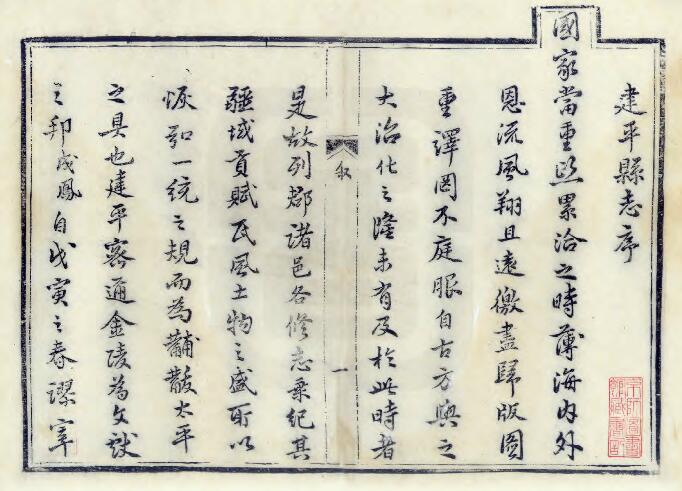 建平縣志序
國家當重熙累洽之時薄海內外
恩流風翔且遠徼盡歸版圖
重譯罔不庭服自古方輿之
大治化之隆未有及於此時者
叙
一
是故列郡諸邑各修志乘紀其
疆域貢賦民風土物之盛所以
恢弘一統之規而為黼黻太平
之具也建平密通金陵為文獻
之邦成鳳自戊寅之春謬宰